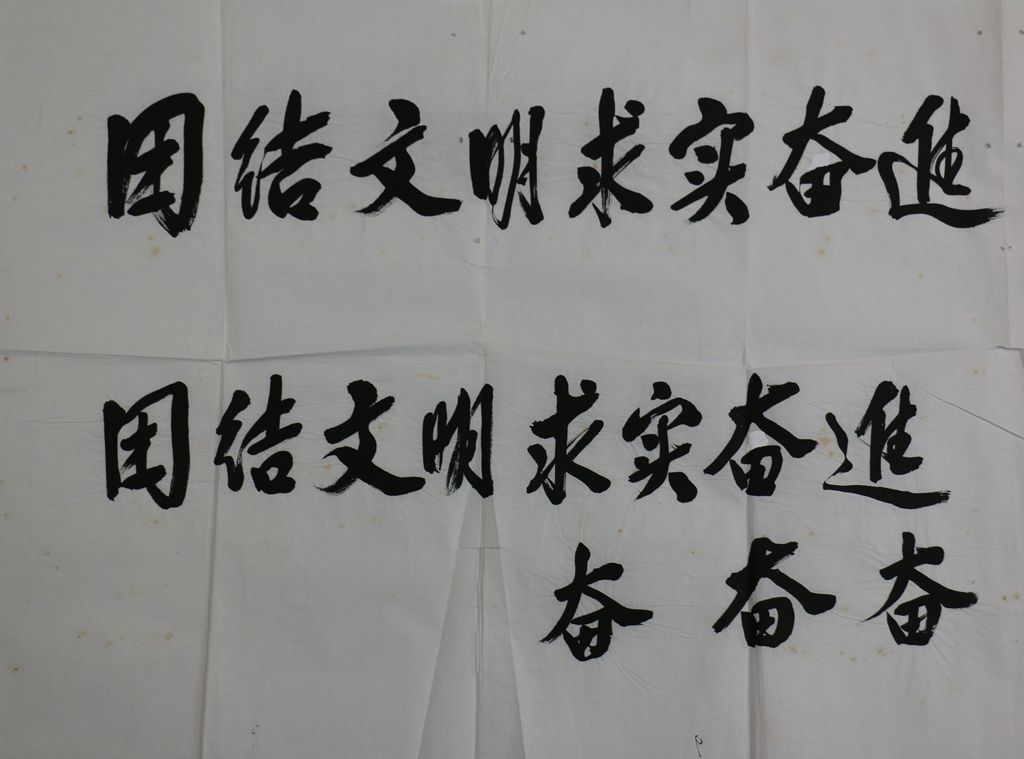 团结文明求实奋進
团结文明求实奋進
奋 奋 奋